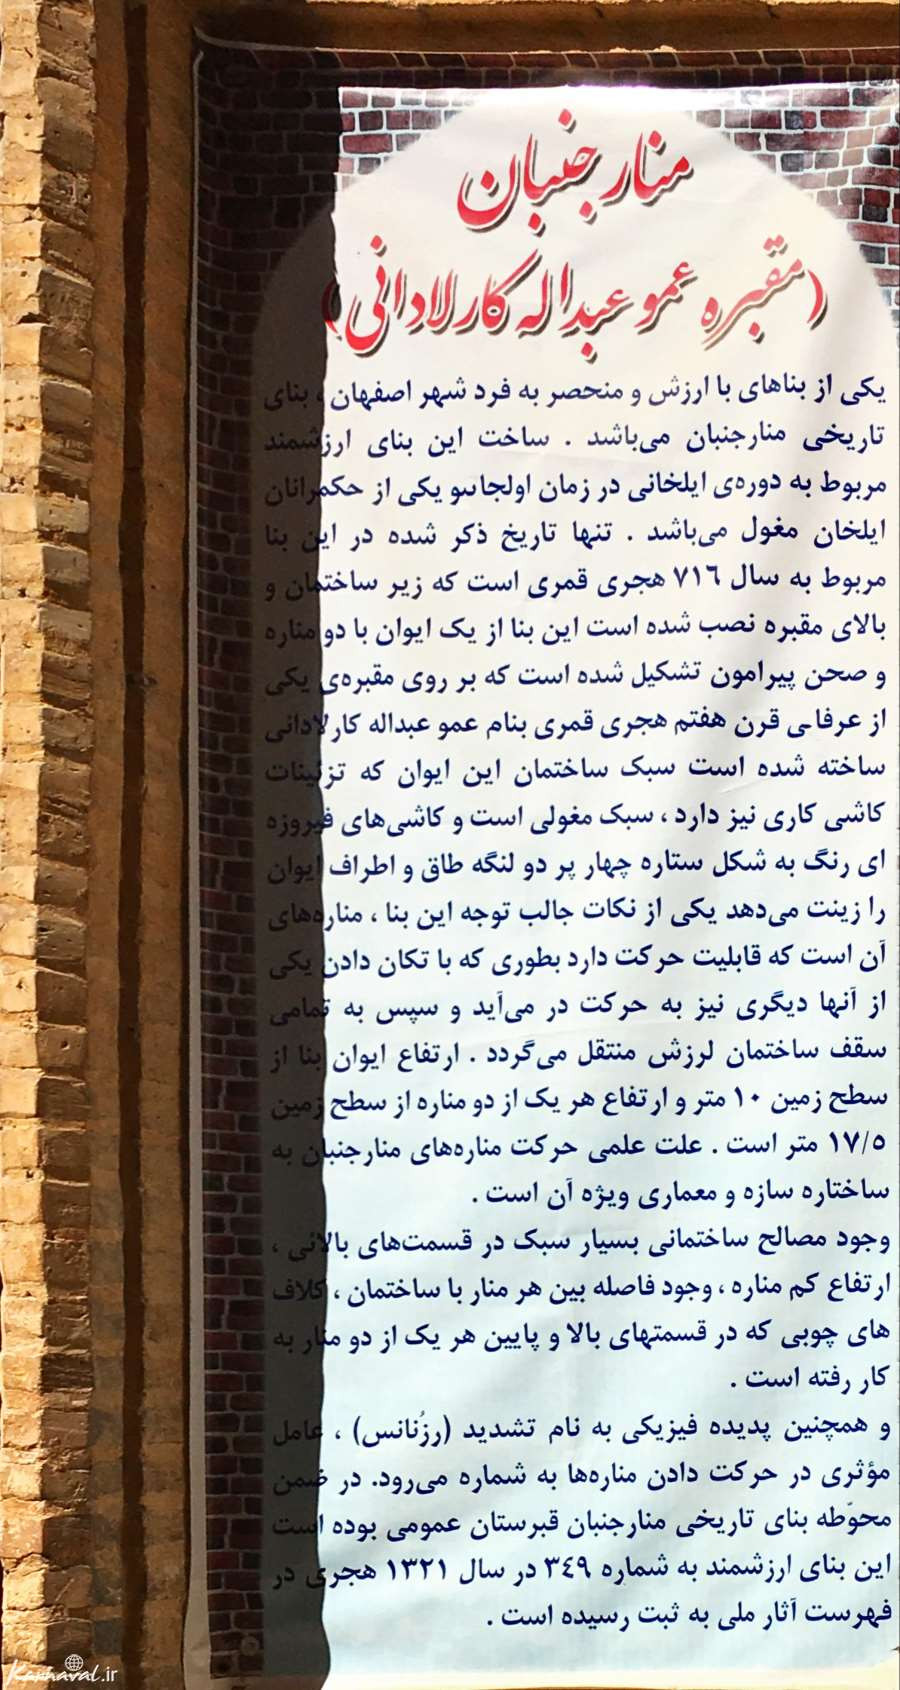 منارجنبان
(مقبره عمو عبداله کارلادانی)
یکی از بناهای با ارزش و منحصر به فرد شهر اصفهان ، بنای
تاریخی منارجنبان می‌باشد . ساخت این بنای ارزشمند
مربوط به دوره‌ی ایلخانی در زمان اولجایتو یکی از حکمرانان
ایلخان مغول می‌باشد . تنها تاریخ ذکر شده در این بنا
مربوط به سال ۷۱٦ هجری قمری است که زیر ساختمان و
بالای مقبره نصب شده است این بنا از یک ایوان با دو مناره
و صحن پیرامون تشکیل شده است که بر روی مقبره‌ی یکی
از عرفای قرن هفتم هجری قمری بنام عمو عبداله کارلادانی
ساخته شده است سبک ساختمان این ایوان که تزئینات
کاشی کاری نیز دارد ، سبک مغولی است و کاشی‌های فیروزه
ای رنگ به شکل ستاره چهار پر دو لنگه طاق و اطراف ایوان
را زینت می‌دهد یکی از نکات جالب توجه این بنا ، مناره‌های
آن است که قابلیت حرکت دارد بطوری که با تکان دادن یکی
از آنها دیگری نیز به حرکت در می‌آید و سپس به تمامی
سقف ساختمان لرزش منتقل می‌گردد . ارتفاع ایوان بنا از
سطح زمین ۱۰ متر و ارتفاع هر یک از دو مناره از سطح زمین
۱۷/٥ متر است . علت علمی حرکت مناره‌های منارجنبان به
ساختاره سازه و معماری ویژه آن است .
وجود مصالح ساختمانی بسیار سبک در قسمت‌های بالائی ،
ارتفاع کم مناره ، وجود فاصله بین هر منار با ساختمان ، کلاف
های چوبی که در قسمتهای بالا و پایین هر یک از دو منار به
کار رفته است .
و همچنین پدیده فیزیکی به نام تشدید (رزُنانس) ، عامل
مؤثری در حرکت دادن مناره‌ها به شماره می‌رود. در ضمن
محوّطه بنای تاریخی منارجنبان قبرستان عمومی بوده است
این بنای ارزشمند به شماره ۳٤۹ در سال ۱۳۲۱ هجری در
فهرست آثار ملی به ثبت رسیده است .
Karnaval.ir